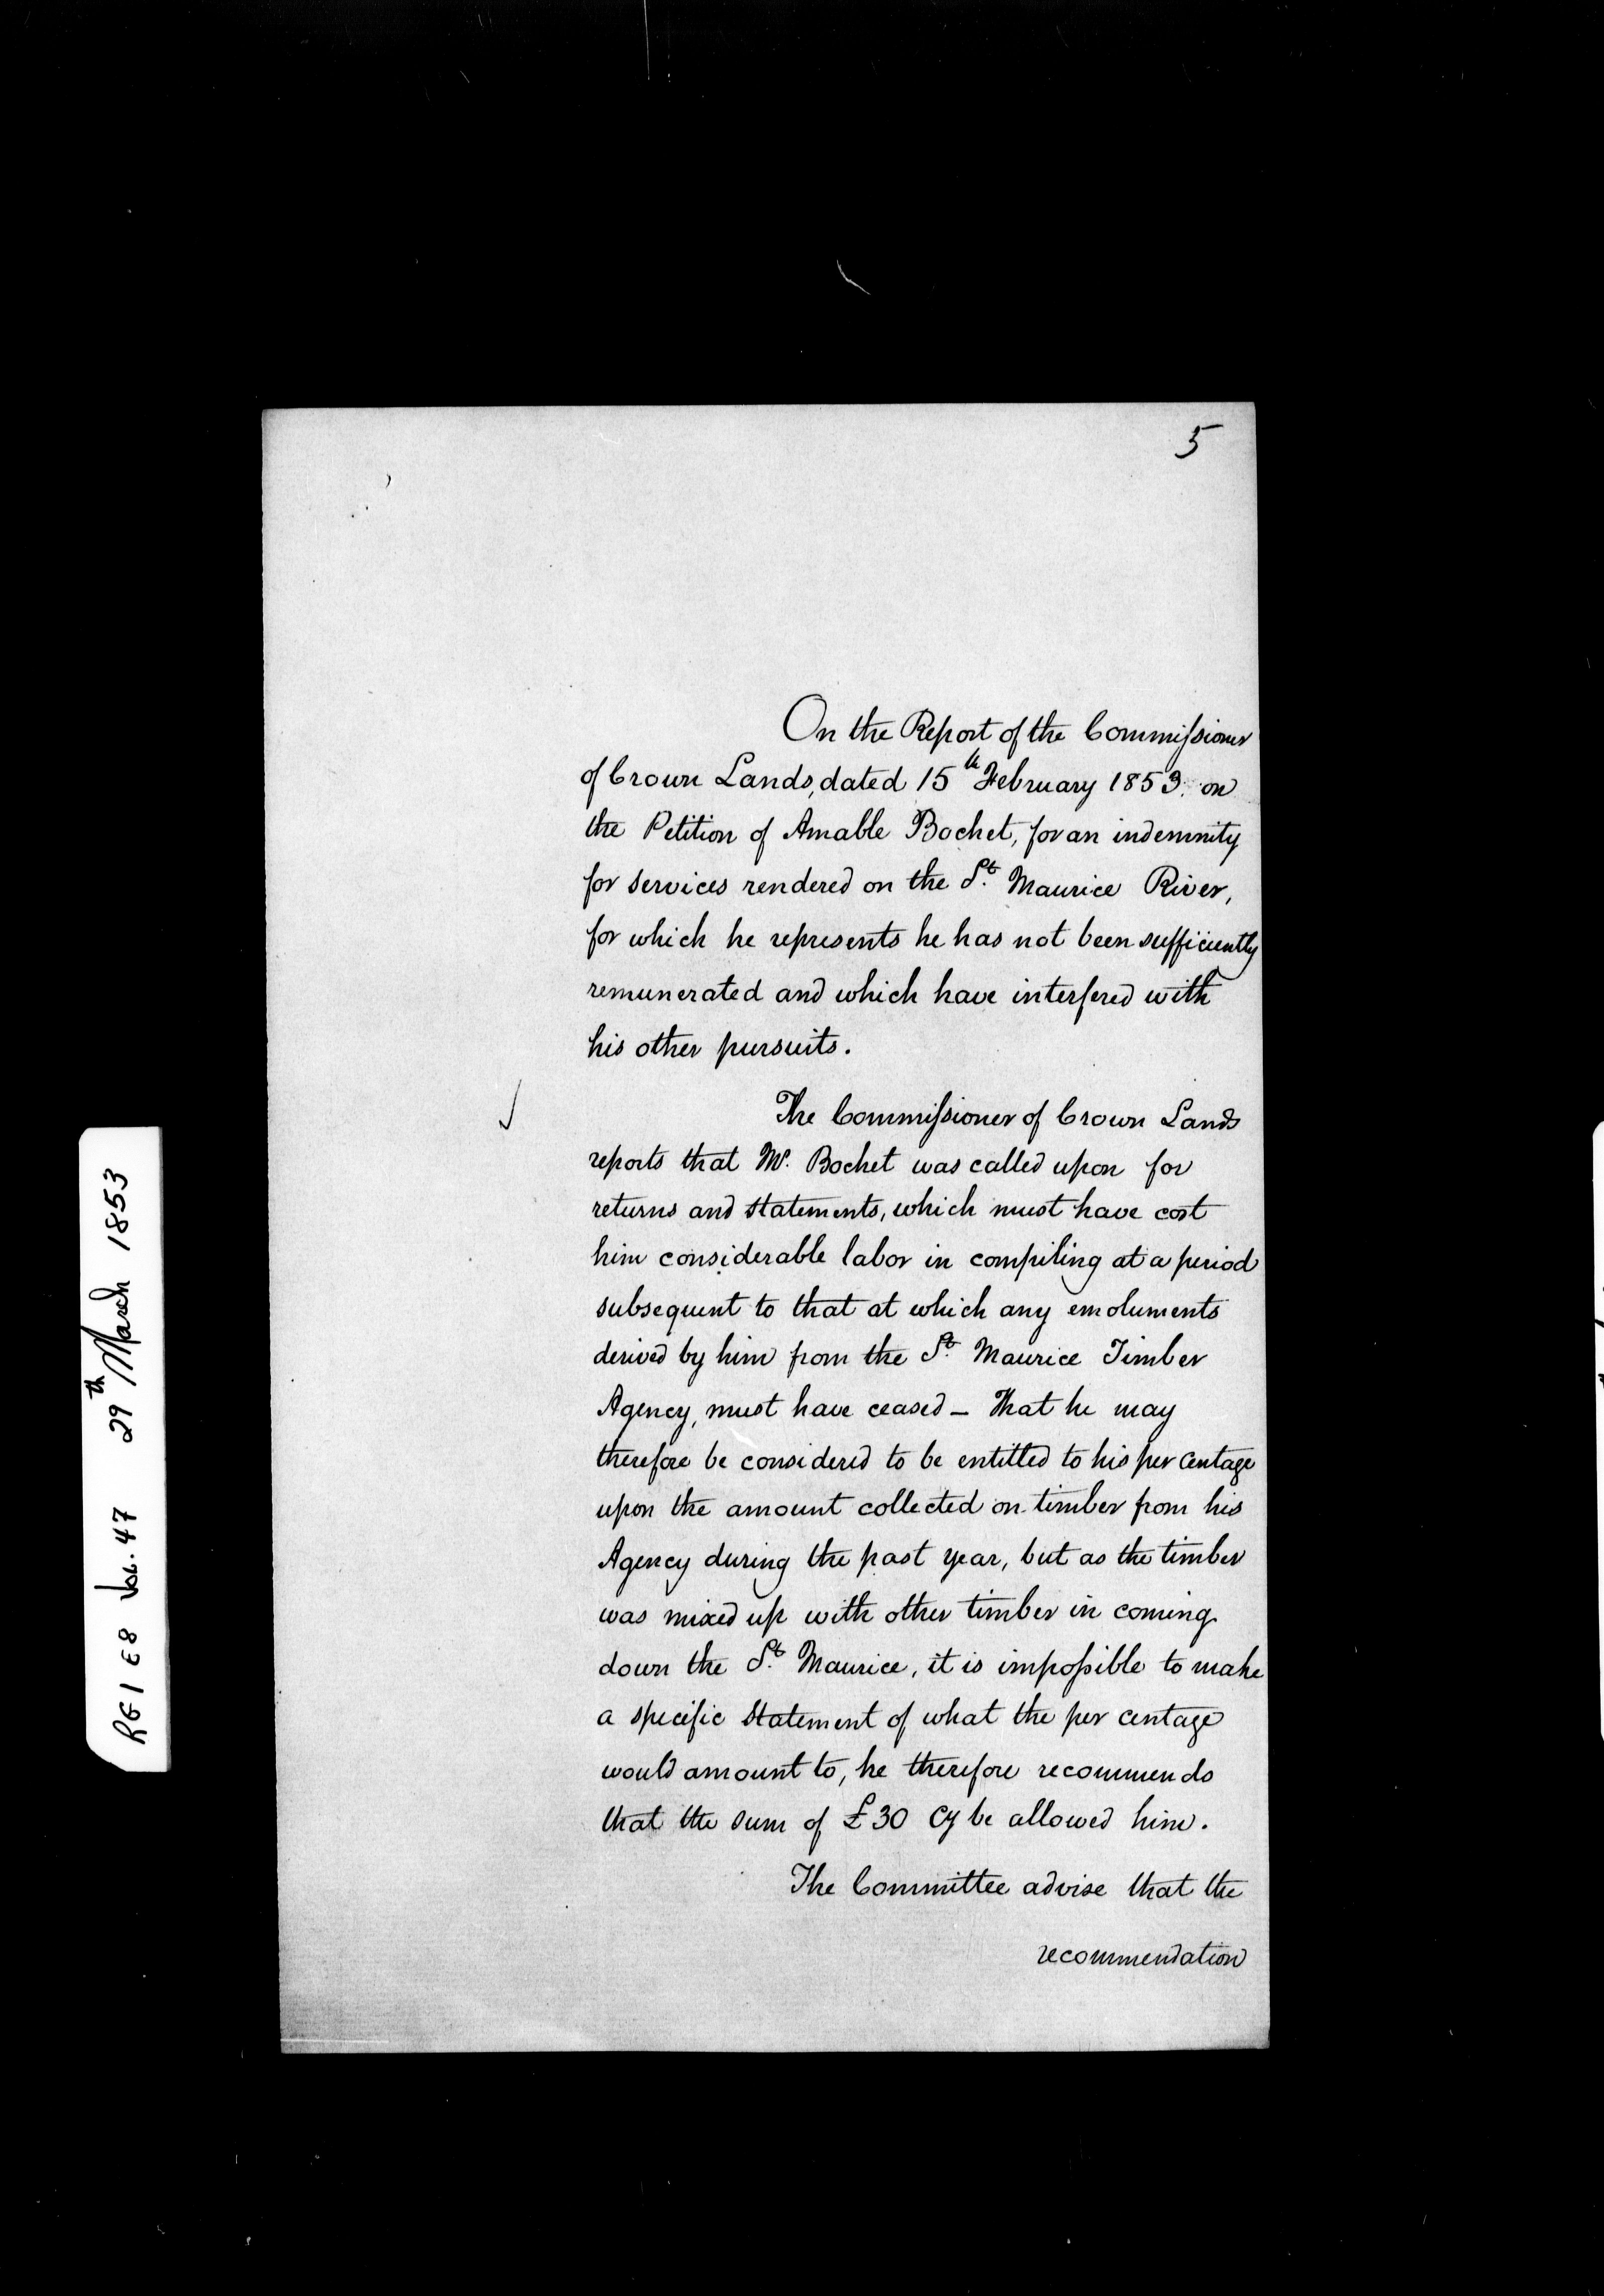 5
On the Report of the Commissioner
of Crown Lands, dated 15th February 1853. on
the Petition of Amable Bochet, for an indemnity
for services rendered on the St. Maurice River,
for which he represents he has not been sufficiently
remunerated and which have interfered with
his other pursuits.
The Commissioner of Crown Lands
reports that Mr. Bochet was called upon for
returns and statements, which must have cost
him considerable labor in compiling at a period
subsequent to that at which any emoluments
derived by him from the St. Maurice Timber
Agency, must have ceased – That he may
therefore be considered to be entitled to his per centage
upon the amount collected on timber from his
Agency during the past year, but as the timber
was mixed up with other timber in coming
down the St. Maurice, it is impossible to make
a specific statement of what the per centage
would amount to, he therefore recommends
that the sum of £30 Cy be allowed him.
The Committee advise that the
recommendation
RG 1 E8 Vol. 47 29th March 1853